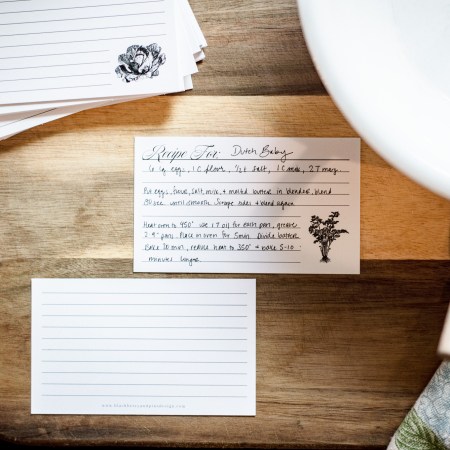 Recipe For: Dutch Baby
6 lg eggs, 1 C flour, 1/2 t salt, 1 C milk, 2 T marg.
Put eggs, flour, salt, milk, + melted butter in blender, blend
until smooth. Scrape sides + blend again
Heat oven to 450° use 1 T oil for each pan, grease
2 9" pans. Place in oven for 5min. Divide batter.
Bake 10 min, reduce heat to 350° + bake 5-10
minutes longer